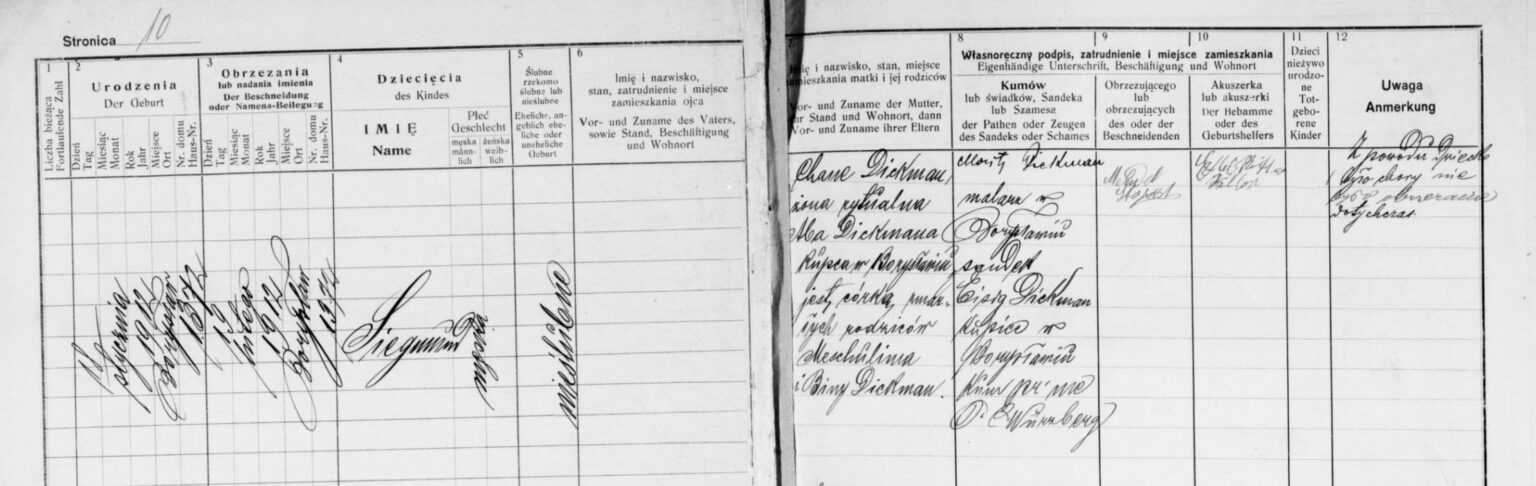 Stronica 10
1
Liczba bieżąca
Fortlaufende Zahl
2
Urodzenia
Der Geburt
Dzień
Tag
Miesiąc
Monat
Rok
Jahr
Miejsce
Ort
Nr. domu
Haus-Nr.
3
Obrzezania
lub nadania imienia
Der Beschneidung
oder Namens-Beilegung
Dzień
Tag
Miesiąc
Monat
Rok
Jahr
Miejsce
Ort
Nr. domu
Haus-Nr.
4
Dziecięcia
des Kindes
IMIĘ
Name
Płeć
Geschlecht
męska
männ-
lich
żeńska
weib-
lich
5
Ślubne
rzekomo
ślubne lub
nieślubne
Eheliche, an-
geblich ehe-
liche oder
uneheliche
Geburt
6
Imię i nazwisko,
stan, zatrudnienie i miejsce
zamieszkania ojca
Vor- und Zuname des Vaters,
sowie Stand, Beschäftigung
und Wohnort
7
Imię i nazwisko, stan, miejsce
zamieszkania matki i jej rodziców
Vor- und Zuname der Mutter,
ihr Stand und Wohnort, dann
Vor- und Zuname ihrer Eltern
8
Własnoręczny podpis, zatrudnienie i miejsce zamieszkania
Eigenhändige Unterschrift, Beschäftigung und Wohnort
Kumów
lub świadków, Sandeka
lub Szamesa
der Pathen oder Zeugen
des Sandeks oder Schames
9
Obrzezującego
lub
obrzezujących
des oder der
Beschneidenden
10
Akuszerka
lub akuszerki
Der Hebamme
oder des
Geburtshelfers
11
Dzieci
nieżywo
urodzo-
ne
Tot-
gebore-
ne
Kinder
12
Uwaga
Anmerkung
stycznia
1912
Borysław
1372
lutego
1912
Borysław
1372
Siegmund
męska
nieślubne
Chane Dickman,
żona rytualna
Dickmana
kupca w Borysławiu
jest córką zmar-
łych rodziców
Meschulima
i Biny Dickman.
Moritz Dickman
malarz w
Borysławiu
sandek
Eisig Dickman
kupiec w
Borysławiu
Kum
Würzberg
Z powodu Dziecko
było chory nie
było obrzezane
dotychczas